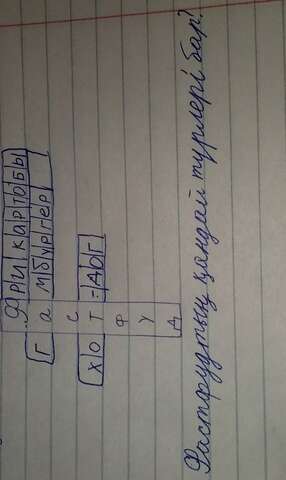 Фри картобы
Гамбургер
с
хот-дог
ф
у
д
Фастфудтың қандай түрлері бар?